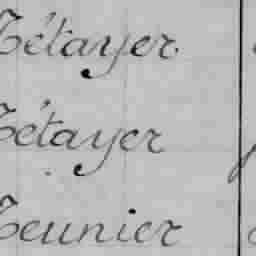 Tétayer
Tétayer
Teunier